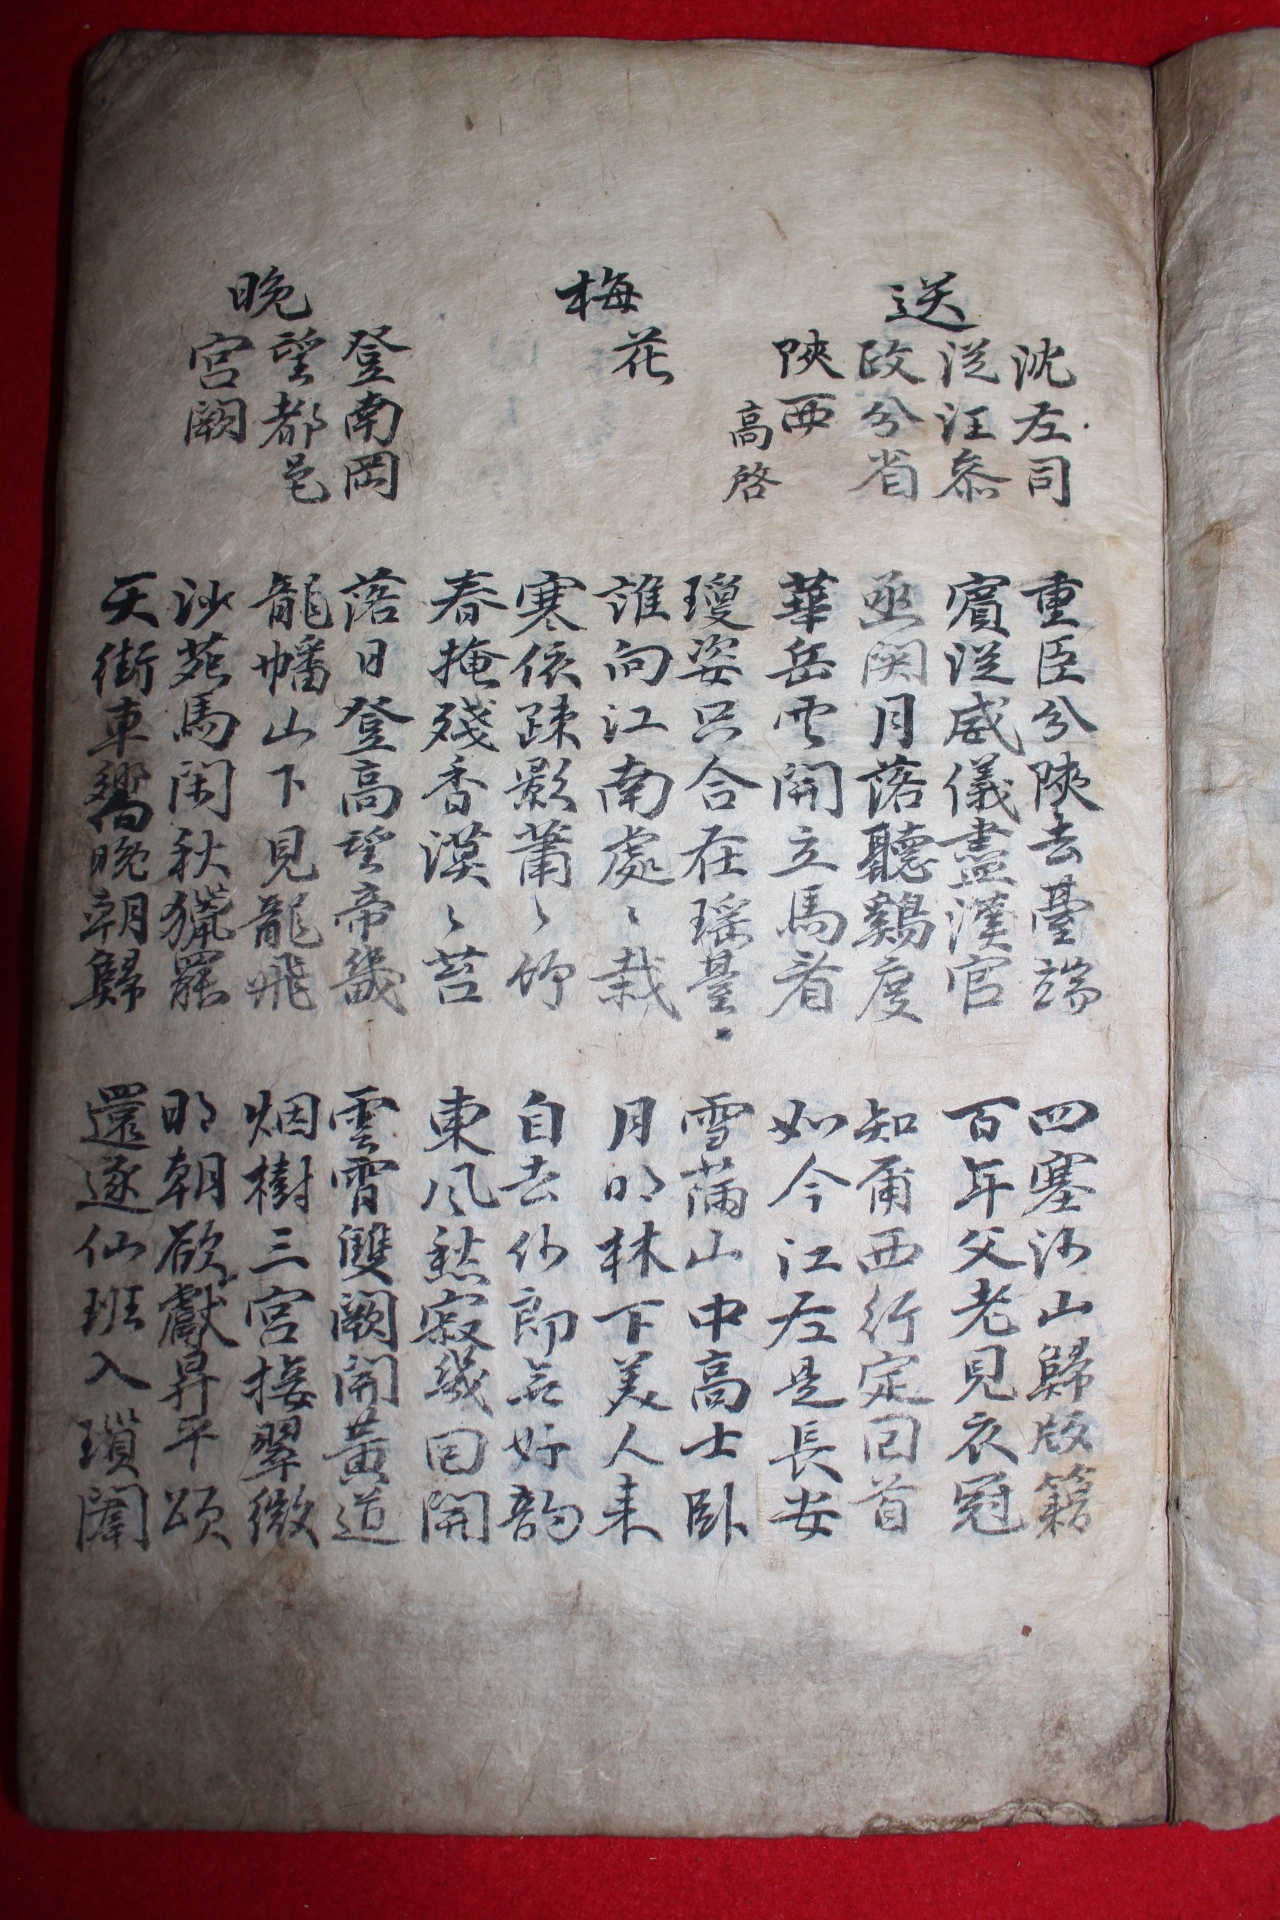 送
沈左司
從汪叅
政分省
陝西
高啓
重臣分陝去臺端
四塞河山歸版籍
賓從威儀盡漢官
百年父老見衣冠
函関月落聽鷄度
知爾西行定回首
華岳雲開立馬看
如今江左是長安
梅花
瓊姿只合在瑶臺
雪滿山中高士臥
誰向江南處〻栽
月明林下美人来
寒依疎影蕭〻竹
自去何郎無好韵
春掩殘香漠〻苔
東風愁寂幾回開
登南岡
晚望都邑
宮闕
落日登高望帝畿
雲霄雙闕開黃道
龍幡山下見龍飛
烟樹三宮接翠微
沙苑馬閑秋獵罷
明朝欲獻昇平頌
天街車響晚朝歸
還逐仙班入瑣闈